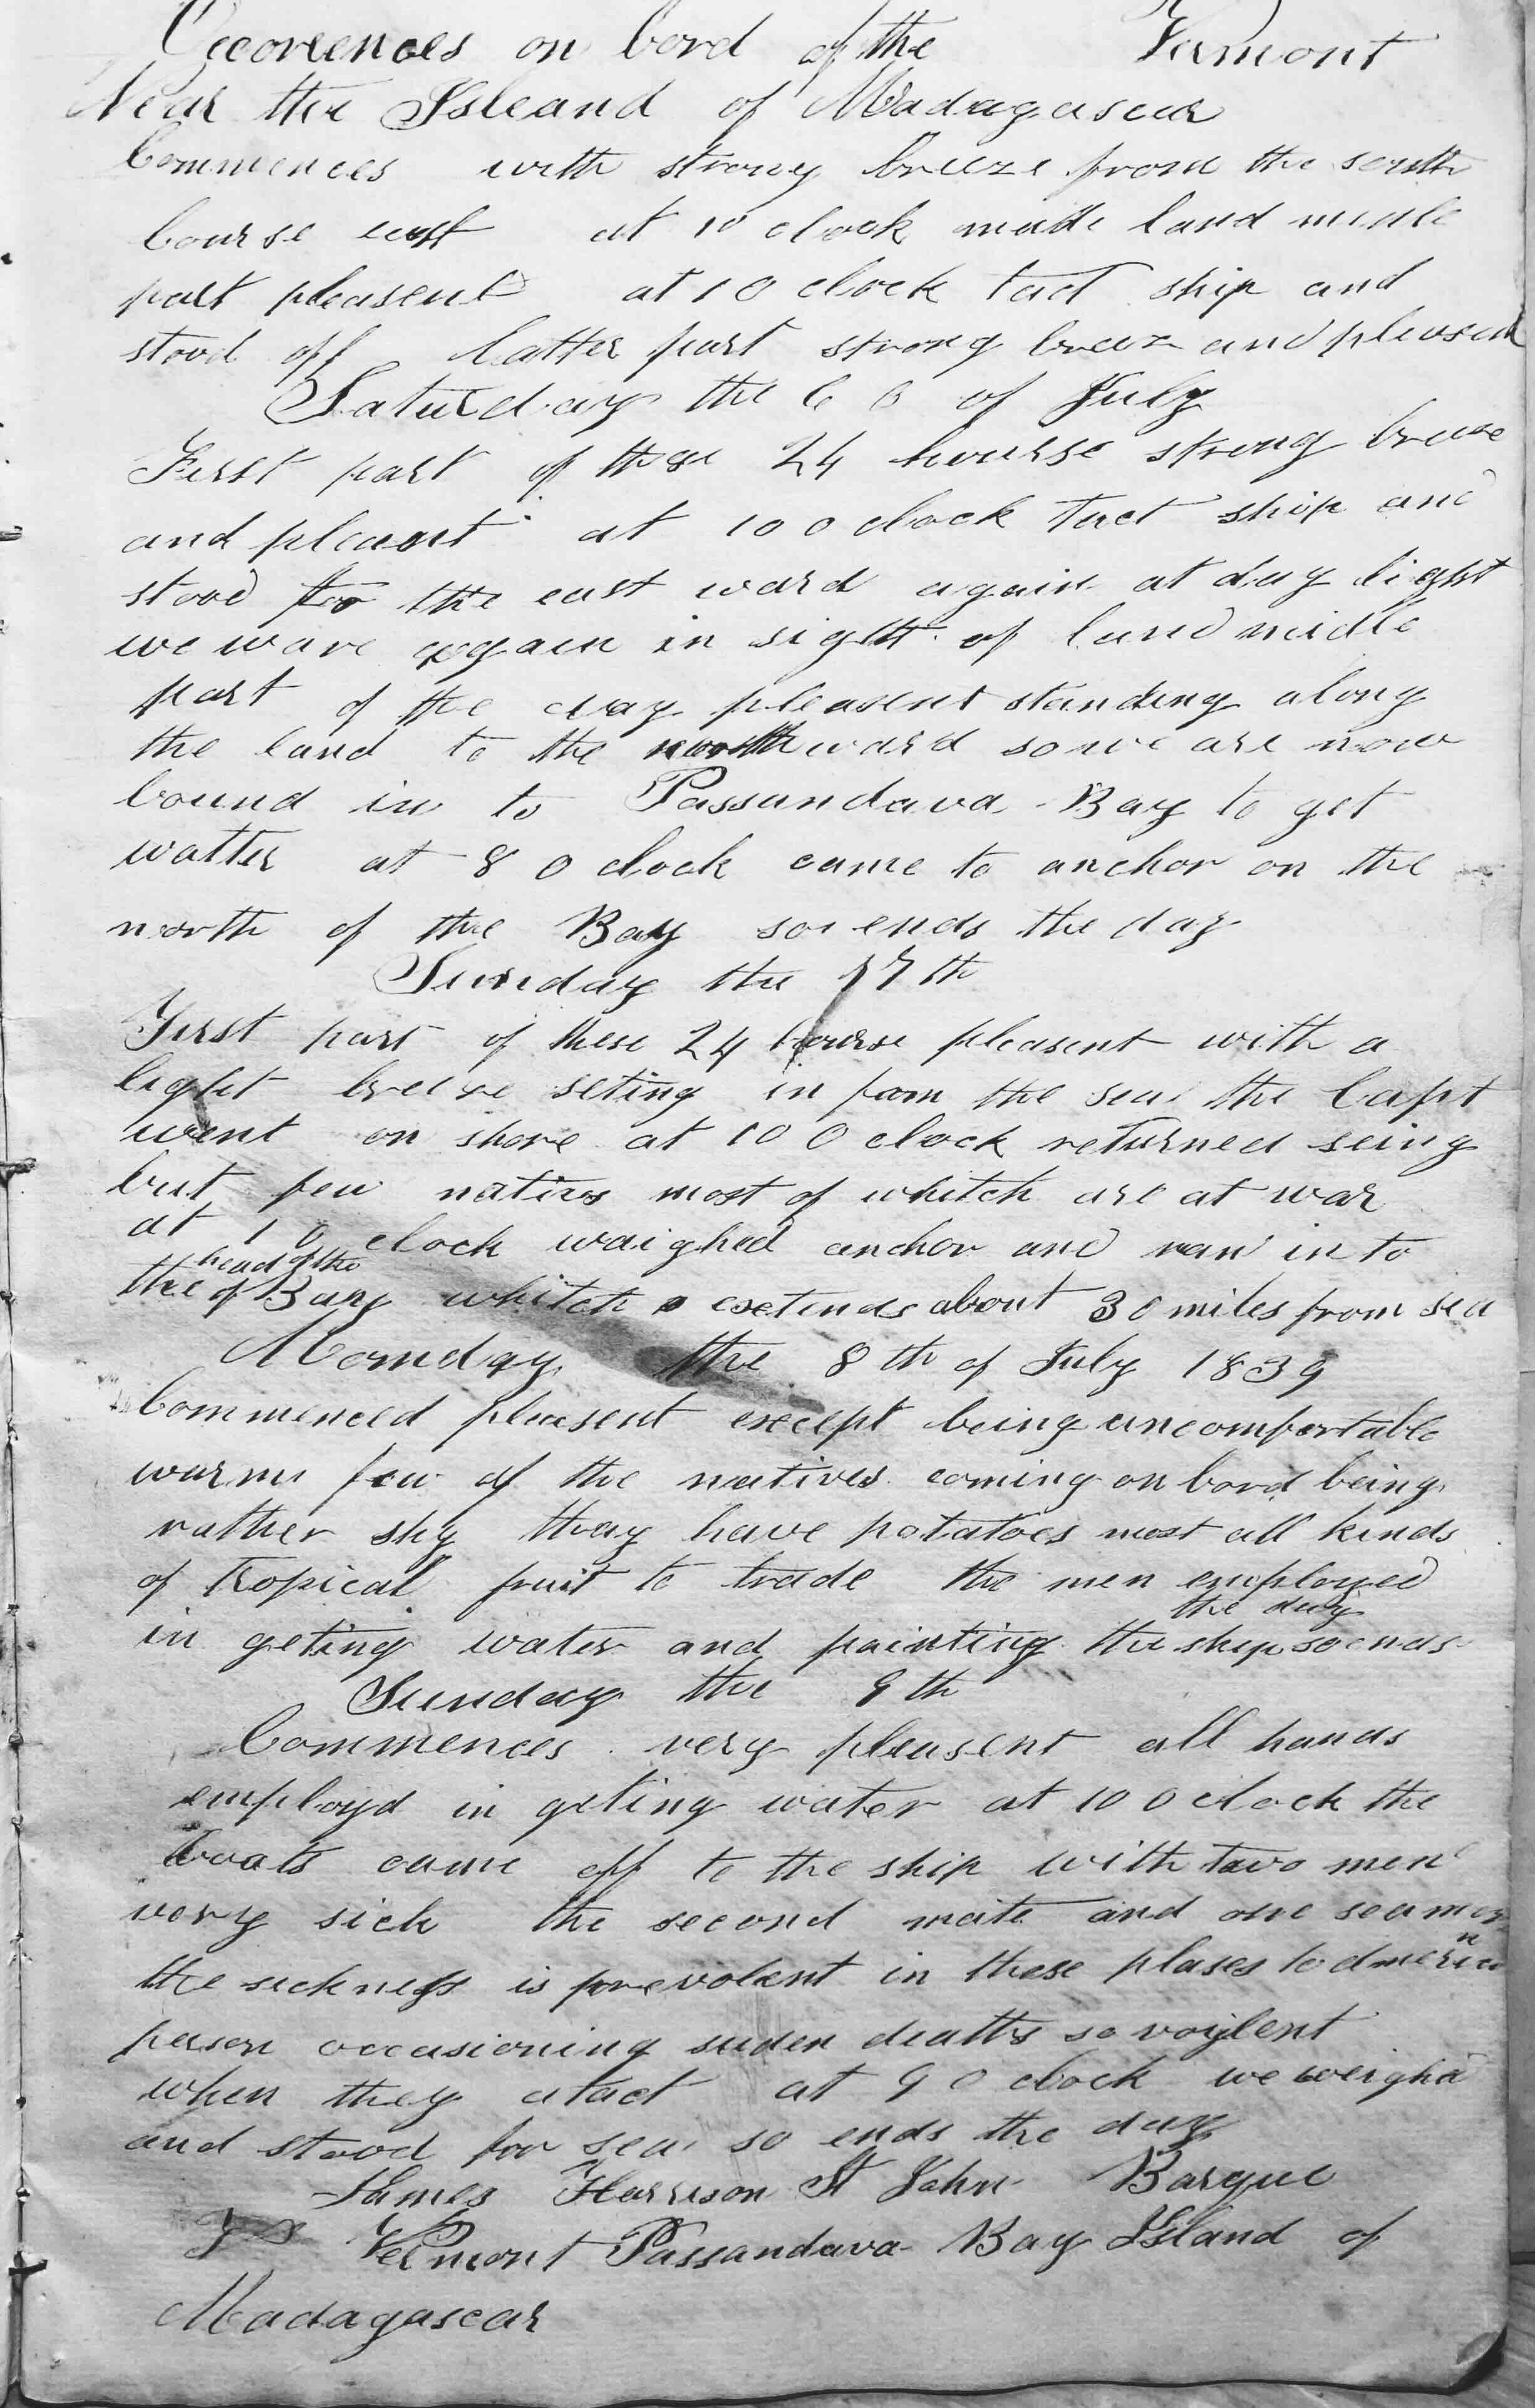 Occorences on bord of the Vermont
Near the Isleand of Madagascar
Commences with strong breeze from the south
Course east at 10 clock made land midle
part pleasent at 10 clock tact ship and
stood off latter part strong breez and pleasent
Saturday the 6 of July
First part of these 24 hourse strong breeze
and pleasnt at 10 0 clock tact ship and
stood for the east ward again at day light
we ware again in sight of land midle
part of the day pleasent standing along
the land to the northward so we are now
bound in to Passandava Bay to get
watter at 8 0 clock came to anchor on the
north of the Bay so ends the day
Sunday the 7th
First part of these 24 hourse pleasent with a
light breeze seting in from the sea the Capt
went on shore at 10 0 clock returned seing
but few natives most of whitch are at war
at 10 clock waighed anchor and ran in to
head of the
the of Bay whitch extends about 30 miles from sea
Momday the 8th of July 1839
Commenced pleasent except being uncomfortable
warm few of the natives coming on bord being
rather shy thay have potatoes most all kinds
of tropical fruit to trade the men employed
the day
in geting water and painting the ship so ends
Sunday the 9th
Commences very pleasent all hands
employd in geting water at 10 0 clock the
boats came off to the ship with two men
very sick the second mate and one seamen
the sickness is prevolent in these plases to American
person occasioning suden deaths so voylent
when they atact at 9 0 clock we weighd
and stood for sea so ends the day
James Harrison St John Barque
Vermont Passandava Bay Island of
Madagascar